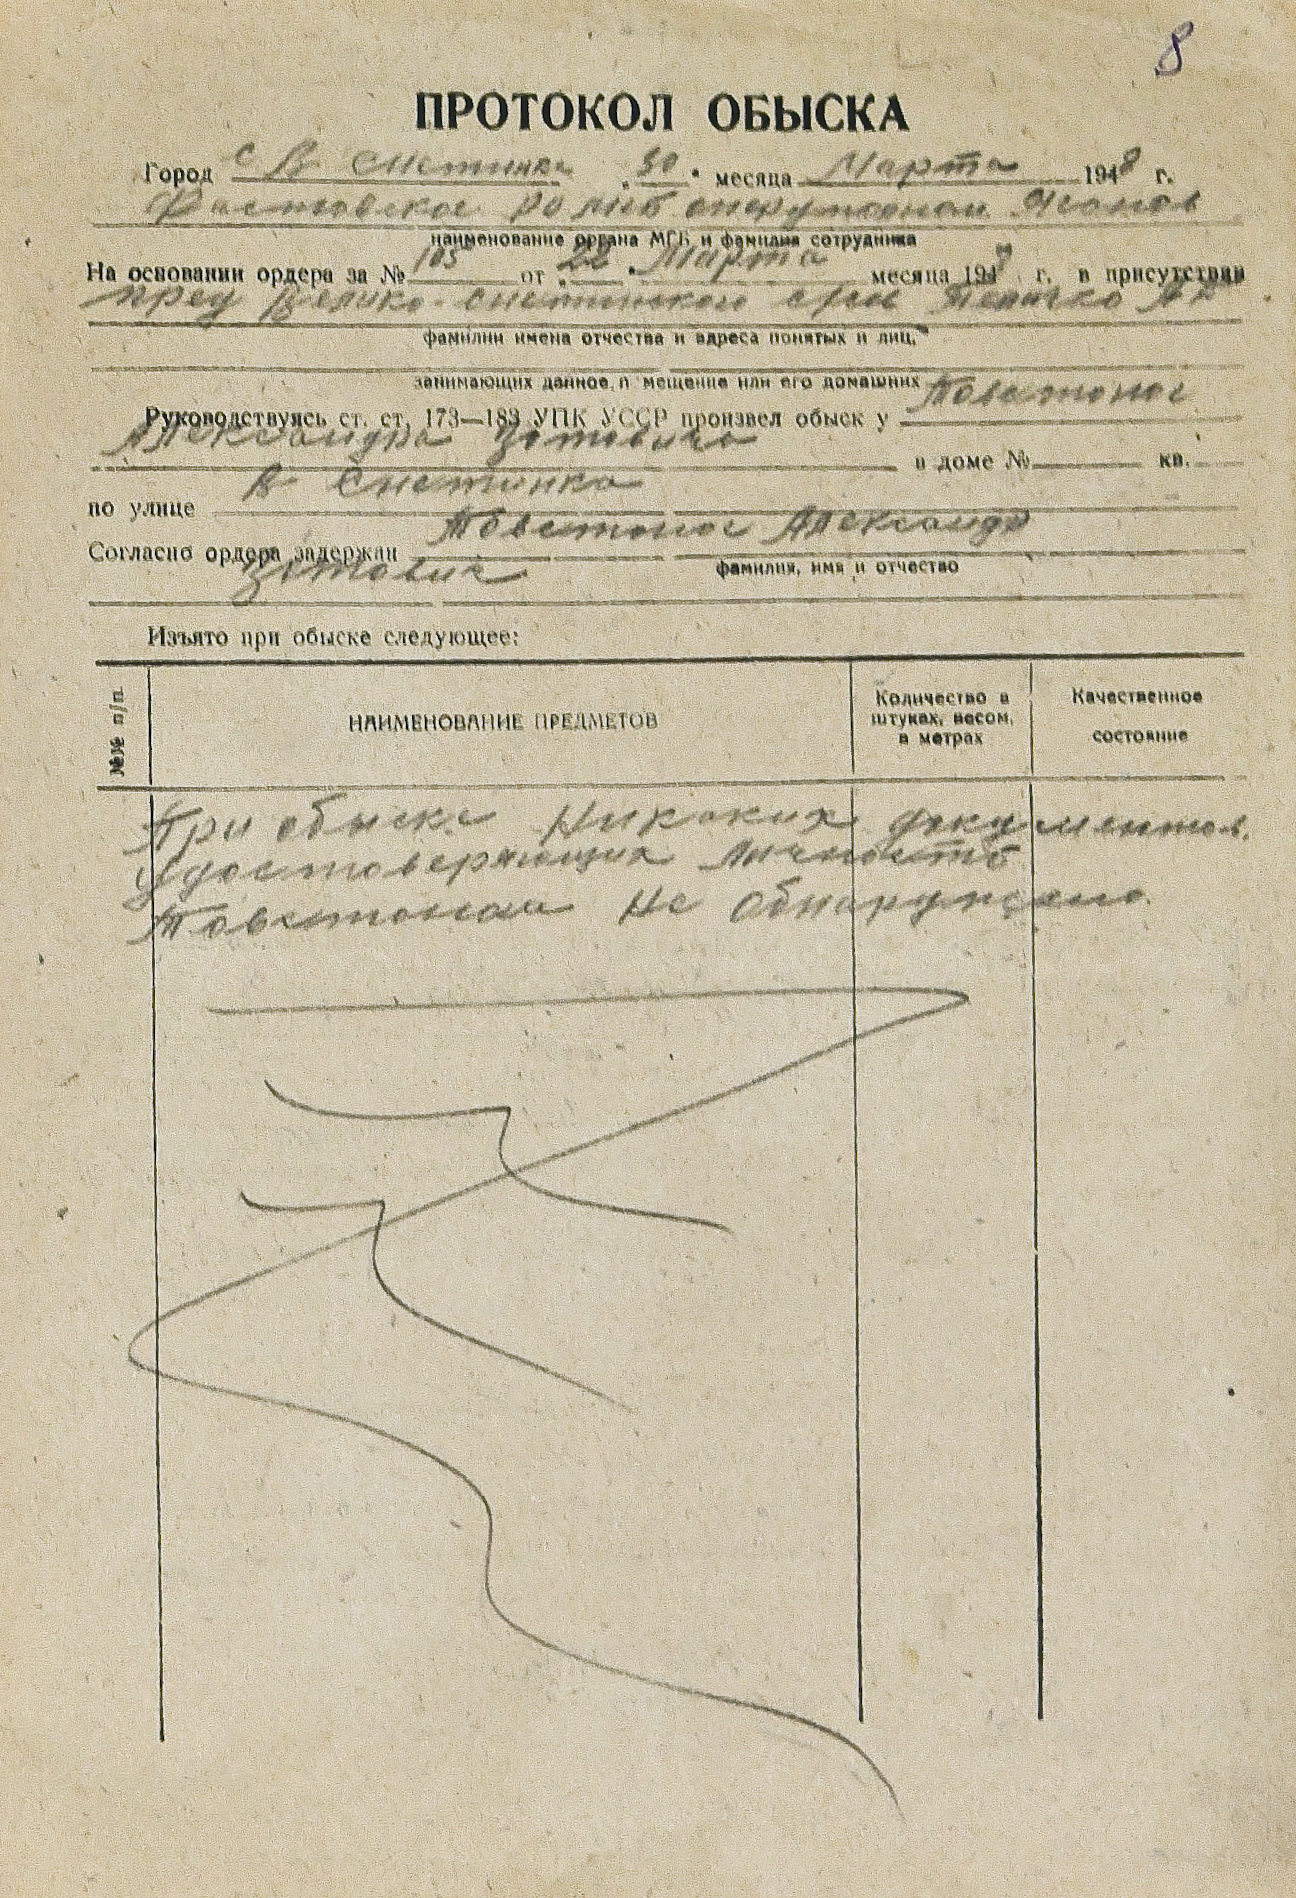 8
ПРОТОКОЛ ОБЫСКА
Город с В Снетинка „30" месяца Марта 1948 г.
Фастовское РО МГБ оперуполном
наименование органа МГБ и фамилия сотрудника
На основании ордера за № 105 от „22" Марта месяца 1948 г. в присутствии
пред Велико-снетинской с/рады
фамилии имена отчества и адреса понятых и лиц,
занимающих данное п мещение или его домашних
Руководствуясь ст. ст. 173—183 УПК УССР произвел обыск у Товстоног
Александра Зотовича в доме № кв.
по улице В Снетинка
Согласно ордера задержан Товстоног Александр
Зотович
фамилия, имя и отчество
Изъято при обыске следующее:
№№ п/п.
НАИМЕНОВАНИЕ ПРЕДМЕТОВ
Количество в штуках, весом, в метрах
Качественное состояние
При обыске Никаких документов.
Удостоверяющих личность
Товстоногам Не обнаружено.